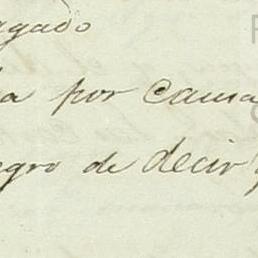 agado
a por causa
egro de decir